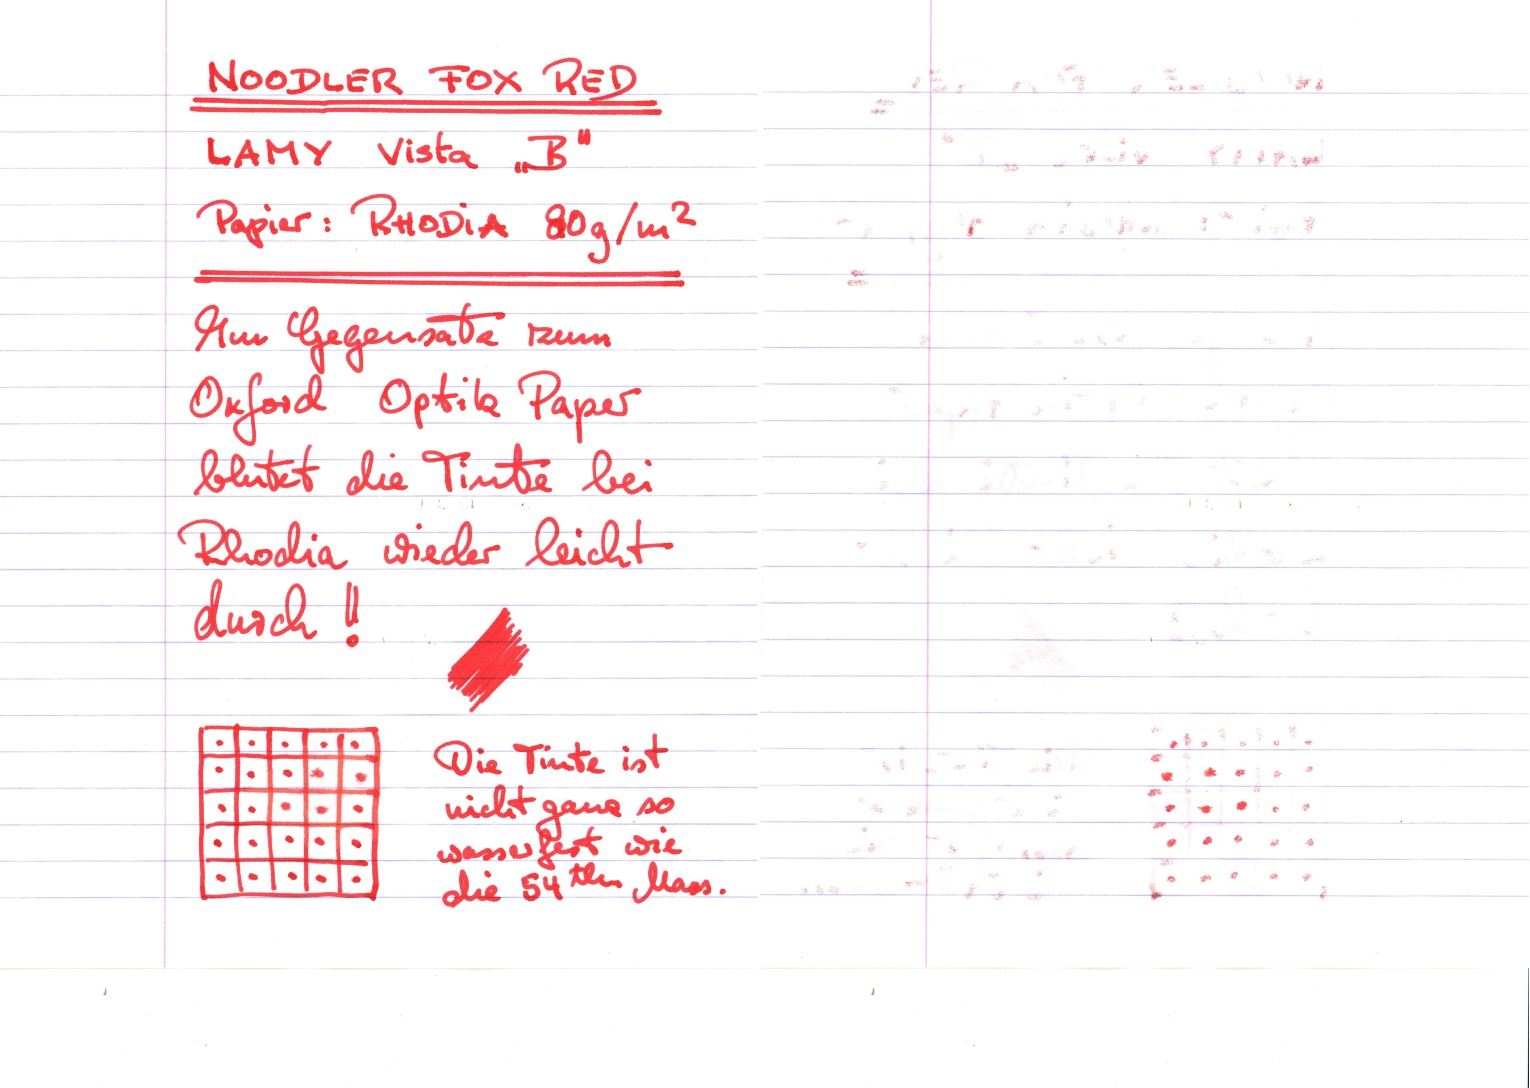 NOODLER FOX RED
LAMY Vista „B"
Papier: RHODiA 80g/m²
Im Gegensatz zum
Oxford Optik Paper
blutet die Tinte bei
Rhodia wieder leicht
durch!!
Die Tinte ist
nicht ganz so
wasserfest wie
die 54thn Mass.